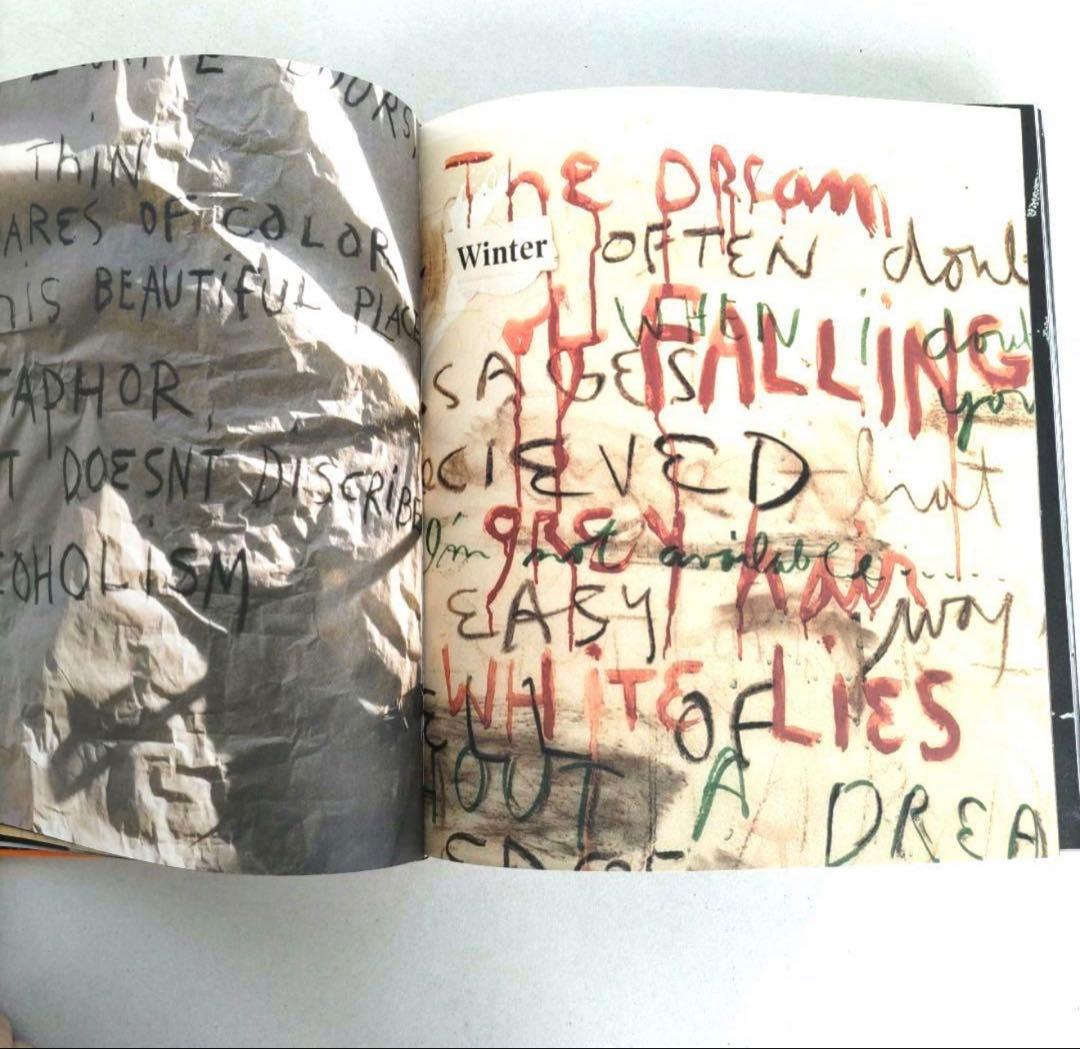 THIN
ARES OF COLOR
HIS BEAUTIFUL PLACE
TAPHOR
T DOESNT DISCRIBE
COHOLISM
The DREam
Winter
OFTEN doubt
WHEN i doubt
FALLING
SAGES
you
CIEVED that
gREY hair
I'm not available......
EASY way
WHiTE LiES
ELL OF
OUT A DREA